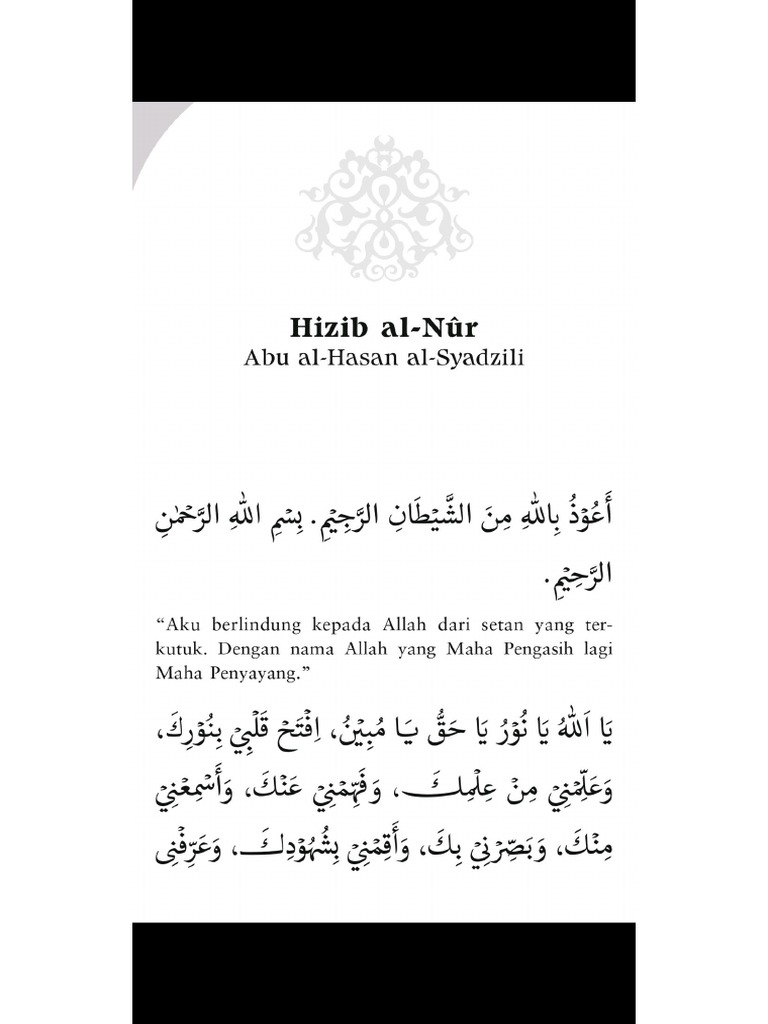 Hizib al-Nûr
Abu al-Hasan al-Syadzili
أَعُوْذُ بِاللهِ مِنَ الشَّيْطَانِ الرَّجِيْمِ. بِسْمِ اللهِ الرَّحْمٰنِ
الرَّحِيْمِ.
“Aku berlindung kepada Allah dari setan yang ter-
kutuk. Dengan nama Allah yang Maha Pengasih lagi
Maha Penyayang.”
يَا اَللهُ يَا نُوْرُ يَا حَقُّ يَا مُبِيْنُ، اِفْتَحْ قَلْبِيْ بِنُوْرِكَ،
وَعَلِّمْنِيْ مِنْ عِلْمِكَ، وَفَهِّمْنِيْ عَنْكَ، وَأَسْمِعْنِيْ
مِنْكَ، وَبَصِّرْنِيْ بِكَ، وَأَقِمْنِيْ بِشُهُوْدِكَ، وَعَرِّفْنِى